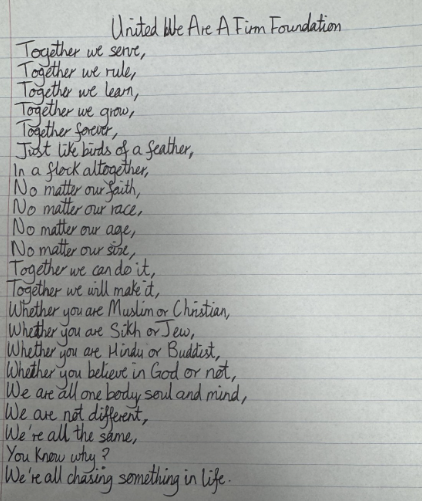 United We Are A Firm Foundation
Together we serve,
Together we rule,
Together we learn,
Together we grow,
Together forever,
Just like birds of a feather,
In a flock altogether,
No matter our faith,
No matter our race,
No matter our age,
No matter our size,
Together we can do it,
Together we will make it,
Whether you are Muslim or Christian,
Whether you are Sikh or Jew,
Whether you are Hindu or Buddist,
Whether you believe in God or not,
We are all one body soul and mind,
We are not different,
We're all the same,
You know why?
We're all chasing something in life.